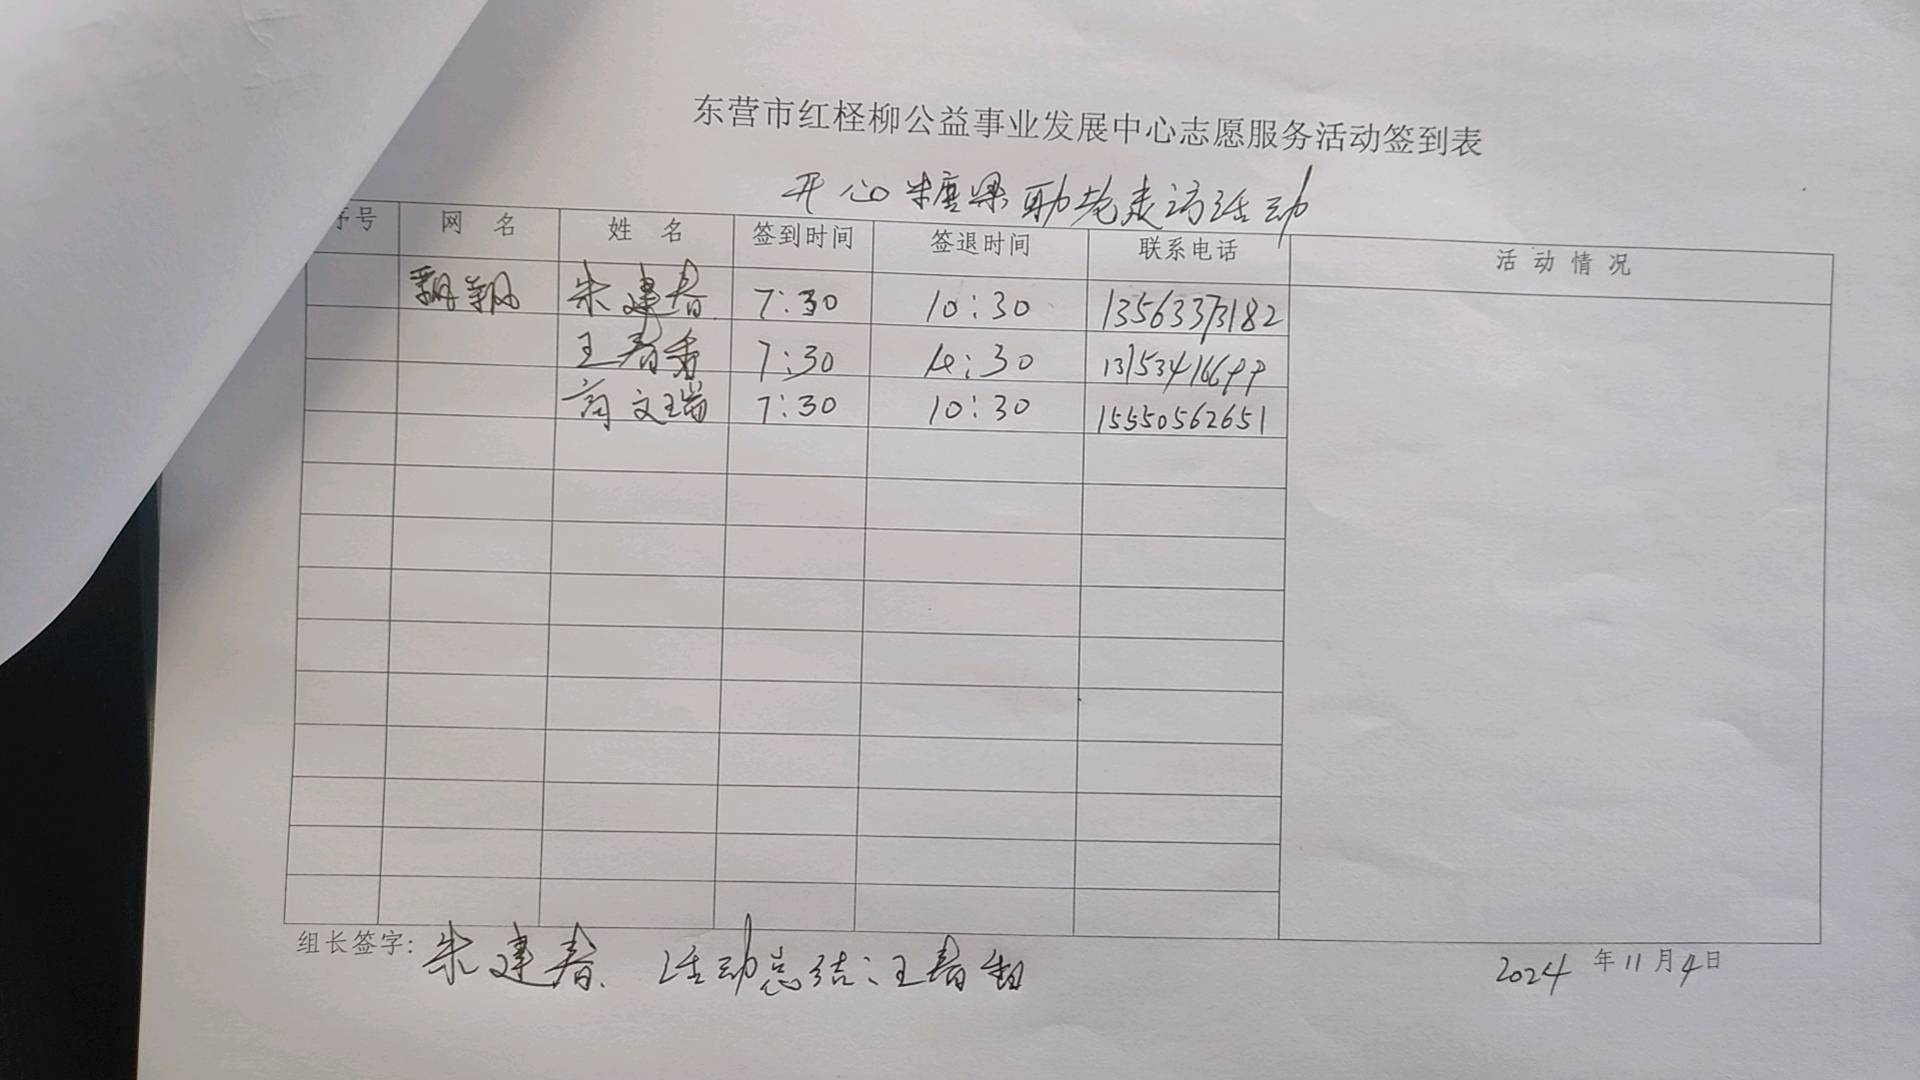 东营市红柽柳公益事业发展中心志愿服务活动签到表
开心糖果助老走访活动
序号 网名 姓名 签到时间 签退时间 联系电话 活动情况
朱建春 7:30 10:30 13563373182
王春香 7:30 4:30
高文瑞 7:30 10:30 15550562651
组长签字: 朱建春. 活动总结:王春
2024年11月4日